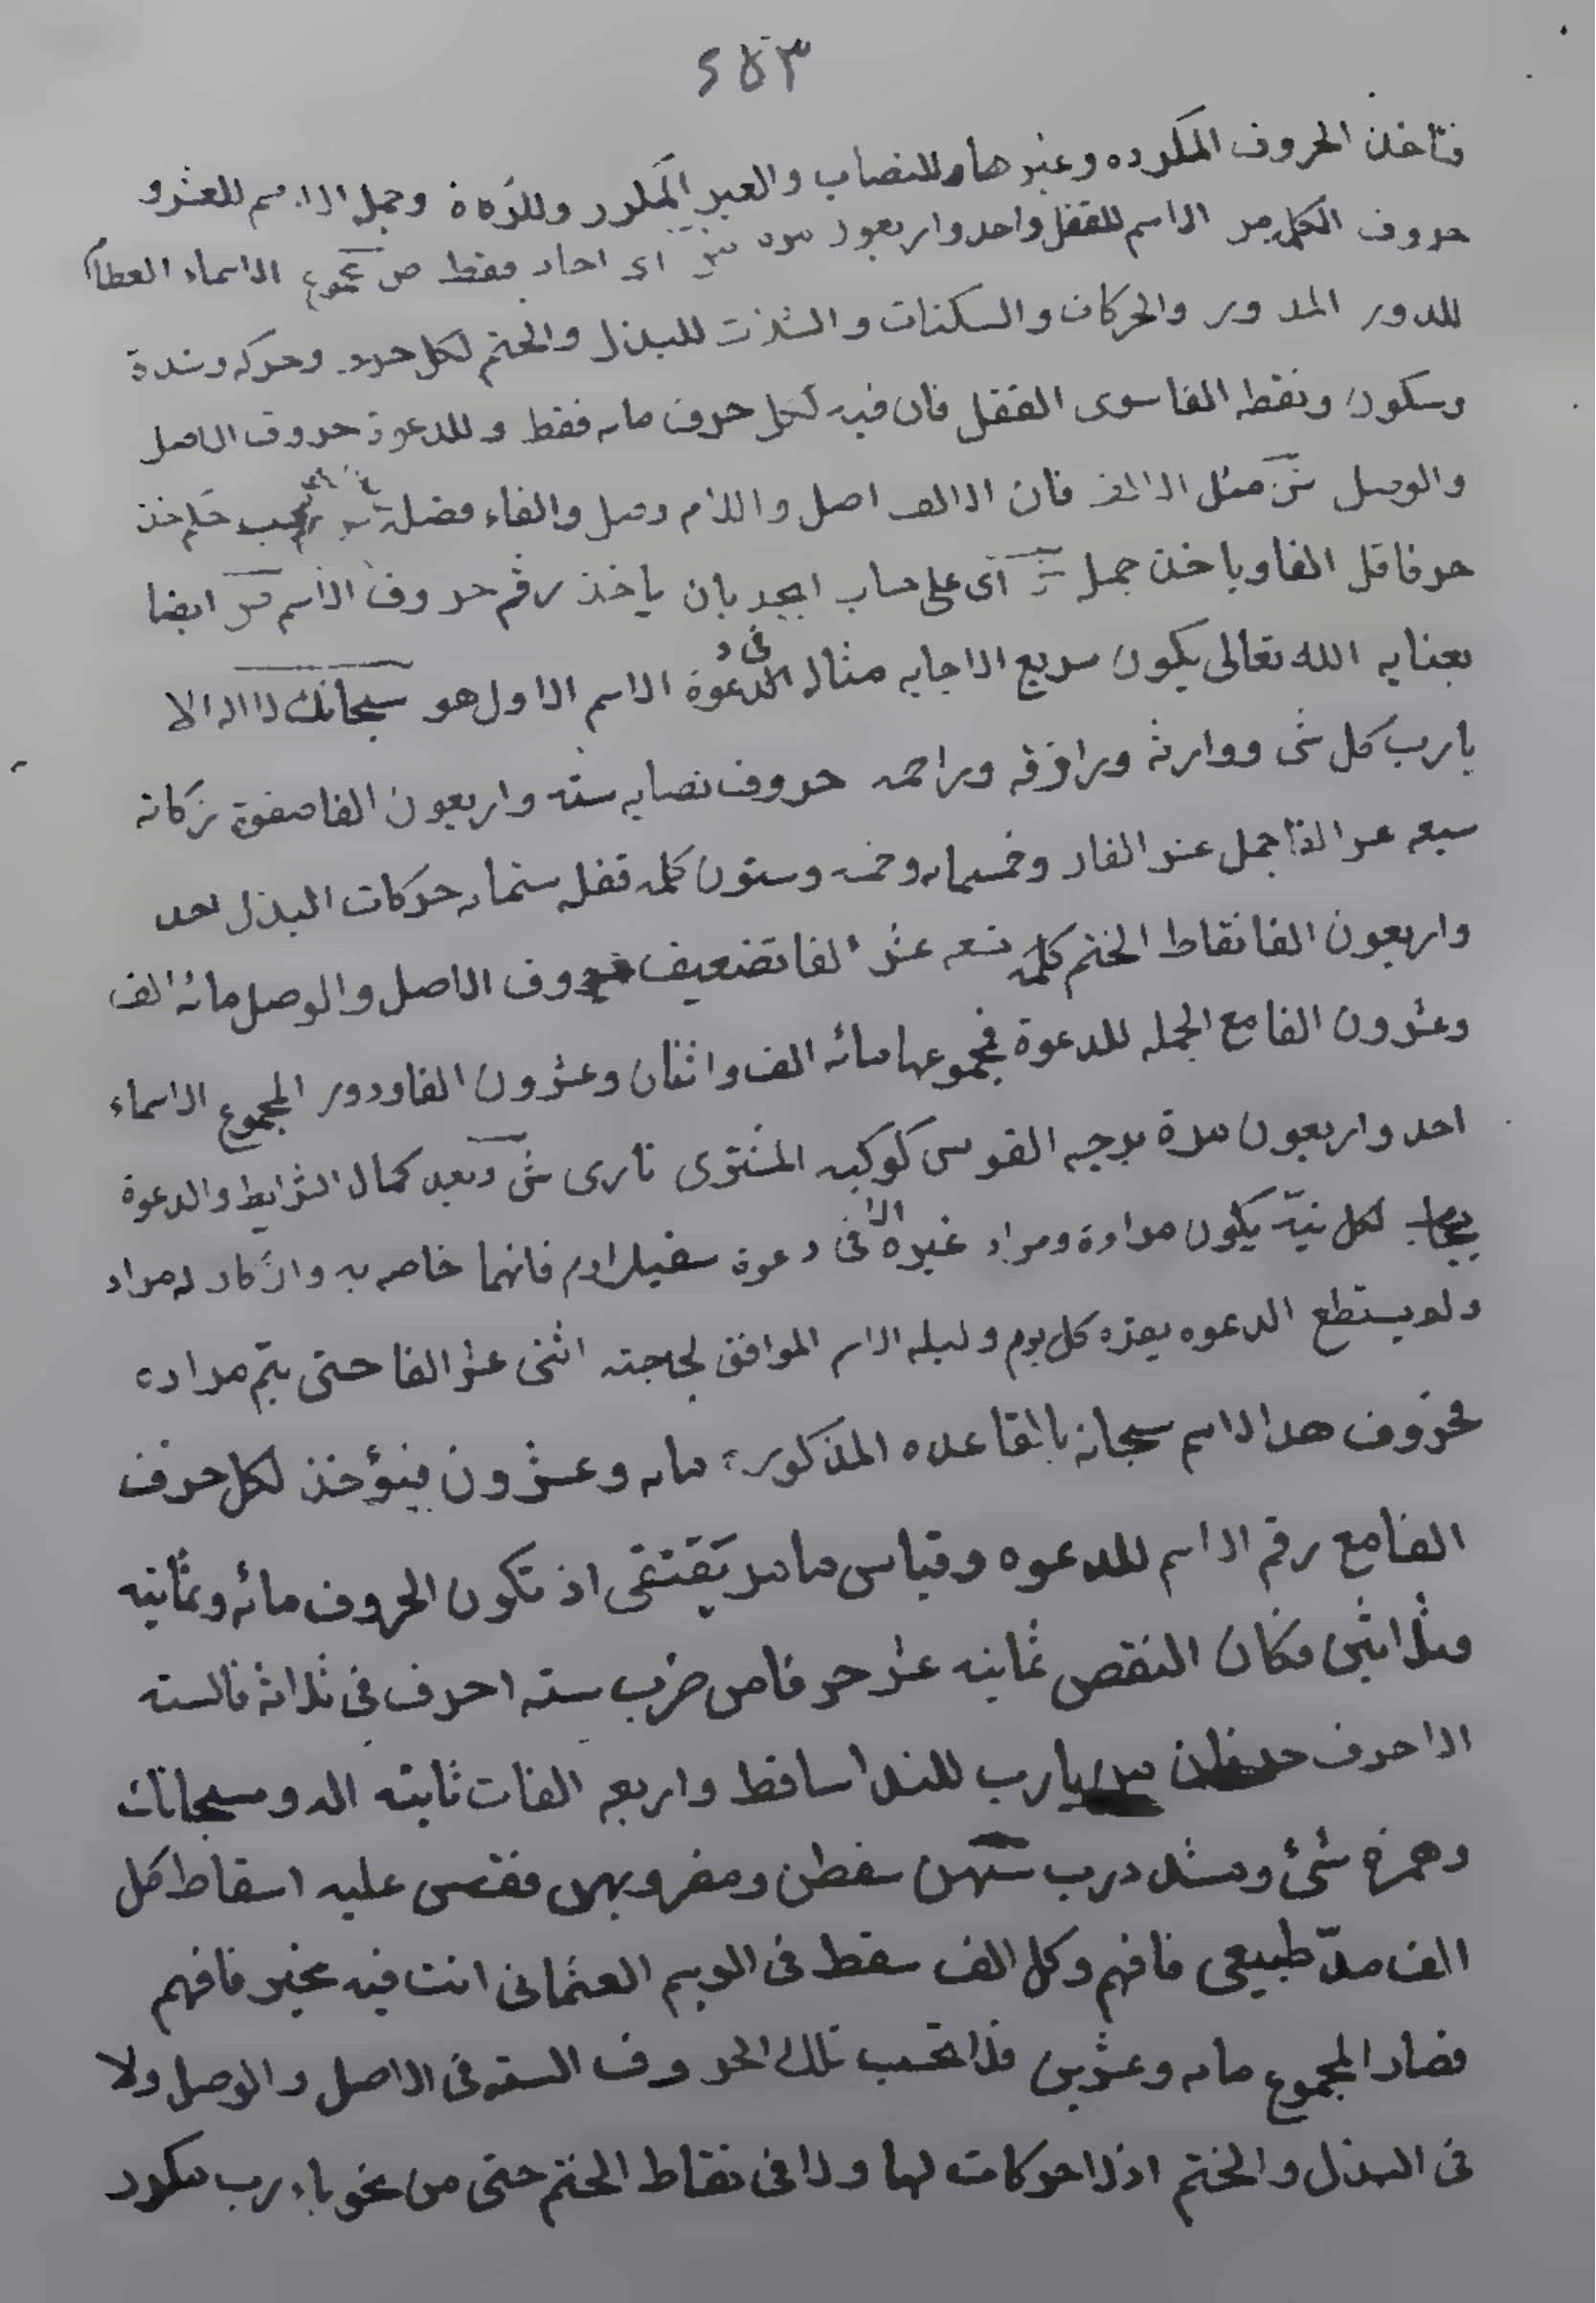 ٢٥٣
فتاخذ الحروف المكرره وغيرها للنصاب والغير المكرر وللزكاة وجمل الاسم للعشر و
حروف الكل من الاسم للقفل واحد واربعون مره اى احاد فقط من مجموع الاسماء العظام
للدور المدور والحركات والسكنات والشدات للبذل والختم لكل حرف وحركه وشدة
وسكون ونقطه الفا سوى القفل فان فيه لكل حرف مايه فقط وللدعوة حروف الاصل
والوصل مثل الالف فان الالف اصل واللام وصل والفاء فضلة
حرفا قل الفا وياخذ جمل اى على حساب ابجد بان ياخذ رقم حروف الاسم ايضا
بعنايه الله تعالى يكون سريع الاجابه مثاله فى الدعوة الاسم الاول هو سبحانك لا اله الا
يارب كل شى ووارثه ورازقه وراحمه حروف نصابه سته واربعون الفا زكاته
سبعه عشر الفا جمل عشر الفان وخمسمايه وخمسه وستون كلمه قفله ستمايه حركات البذل احد
واربعون الفا نقاط الختم كلمه تسعه عشر الفا تضعيف حروف الاصل والوصل مائه الف
وعشرون الفا مع الجمله للدعوة فمجموعها مائه الف واثنان وعشرون الفا ودور المجموع الاسماء
احد واربعون مرة برجه القوس كوكبه المشترى نارى وبعد كمال الشرايط والدعوة
لكل نية يكون مراده ومراد غيره الا فى دعوة فانهما خاصه به وان كان له مراد
ولم يستطع الدعوه يقره كل يوم وليله الاسم الموافق لحاجته اثنى عشر الفا حتى يتم مراده
فحروف هذا الاسم سبحانه بالقاعده المذكوره مايه وعشرون فيؤخذ لكل حرف
الفا مع رقم الاسم للدعوه وقياس ما مر يقتضى ان تكون الحروف مائه وثمانيه
وثلاثين فكان النقص ثمانيه عشر حرفا من ضرب سته احرف فى ثلاثه فالسته
الاحرف يارب للندا ساقط واربعه الفات ثابته اله وسبحانك
وهمزة شئ رب سقطن ومضروبهن فقس عليه اسقاط كل
الف مدّ طبيعى فافهم وكل الف سقط فى الرسم العثمانى انت فيه مخير فافهم
فصار المجموع مايه وعشرين فلا تحسب تلك الحروف السته فى الاصل والوصل ولا
فى البذل والختم اذ لا حركات لها ولا فى نقاط الختم حتى من نحو باء رب